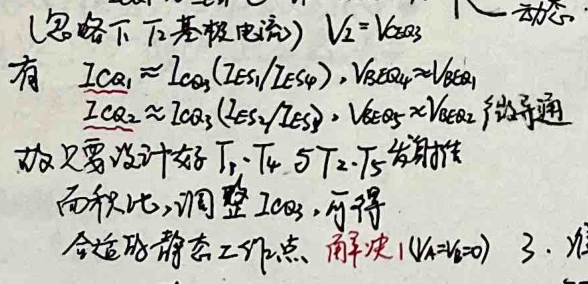 (忽略下T₂基极电流) V₂=V_CEQ3 动态
有 I_CQ1≈I_CQ3(I_ES1/I_ES4), V_BEQ4≈V_BEQ1
I_CQ2≈I_CQ3(I_ES2/I_ES5), V_BEQ5≈V_BEQ2 微导通
故只要设计好T₁、T₄与T₂、T₅发射结
面积比,调整I_CQ3,可得
合适的静态工作点 解决1(V_A=V_B=0) 3.